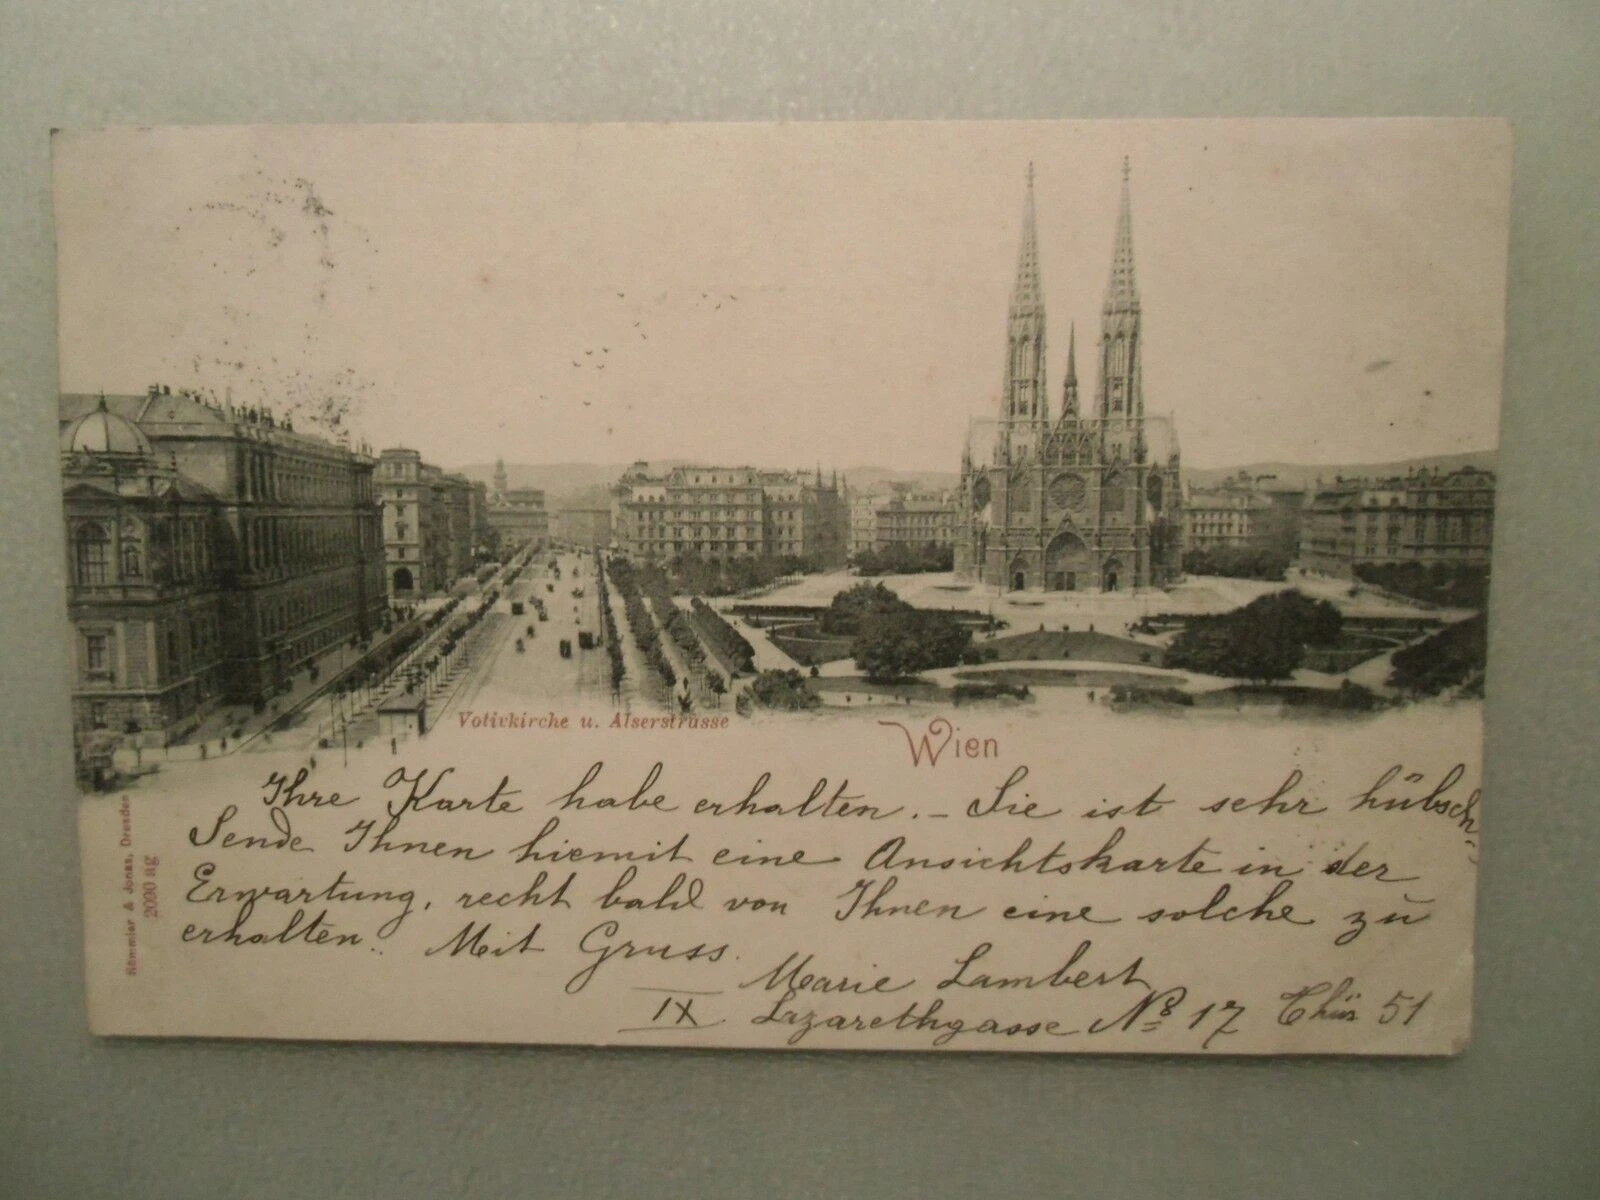 Votivkirche u. Alserstrasse
Wien
Ihre Karte habe erhalten. – Sie ist sehr hübsch
Sende Ihnen hiemit eine Ansichtskarte in der
Erwartung, recht bald von Ihnen eine solche zu
erhalten. Mit Gruss.
Marie Lambert
IX Lazarethgasse No 17 Thür 51
Römmler & Jonas, Dresden
2090 ag